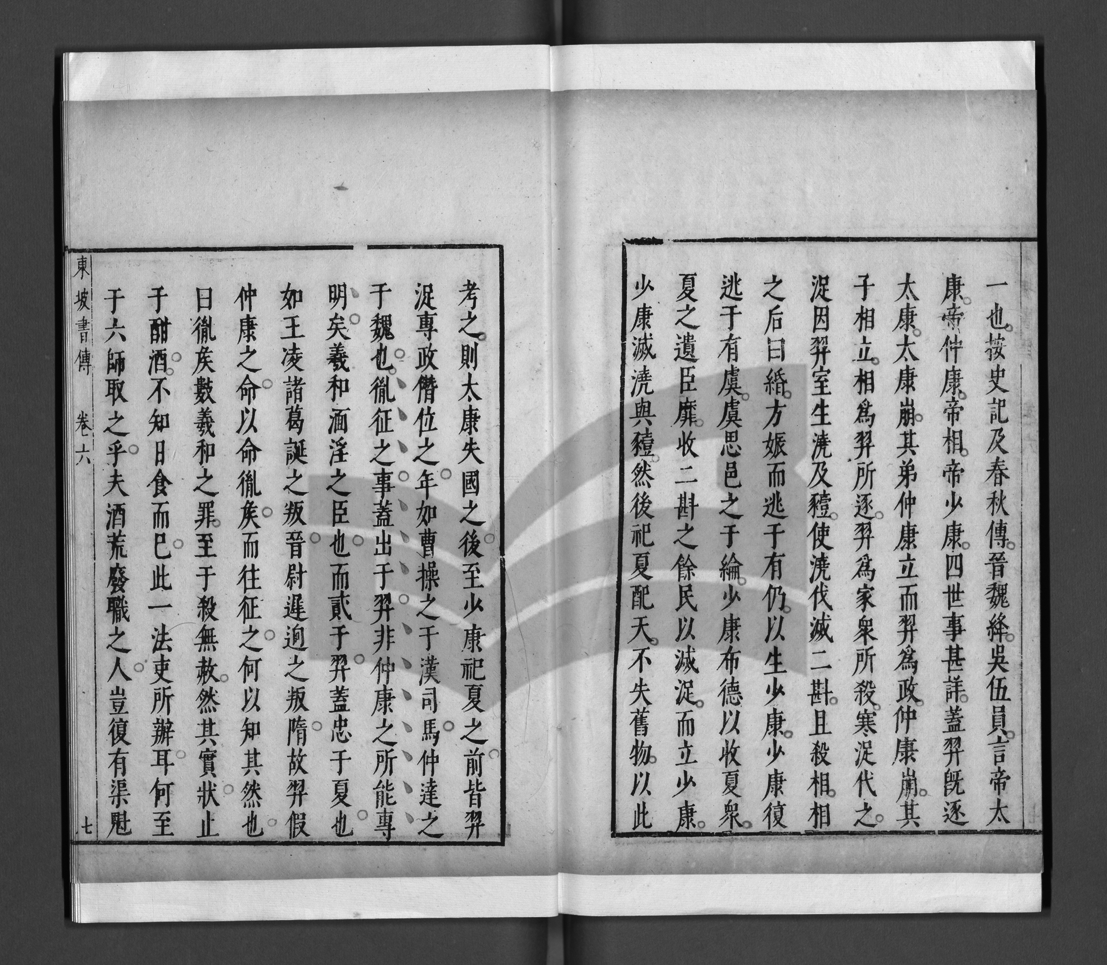 一也按史記及春秋傳晉魏絳吳伍員言帝太
康帝仲康帝相帝少康四世事甚詳蓋羿旣逐
太康太康崩其弟仲康立而羿為政仲康崩其
子相立相為羿所逐羿為家衆所殺寒浞代之
浞因羿室生澆及豷使澆伐滅二斟且殺相相
之后曰緡方娠而逃于有仍以生少康少康復
逃于有虞虞思邑之于綸少康布德以收夏衆
夏之遺臣靡收二斟之餘民以滅浞而立少康
少康滅澆與豷然後祀夏配天不失舊物以此
考之則太康失國之後至少康祀夏之前皆羿
浞專政僭位之年如曹操之于漢司馬仲達之
于魏也㣧征之事蓋出于羿非仲康之所能專
明矣羲和湎淫之臣也而貳于羿蓋忠于夏也
如王凌諸葛誕之叛晉尉遲迥之叛隋故羿假
仲康之命以命㣧矦而往征之何以知其然也
曰㣧矦數羲和之罪至于殺無赦然其實狀止
于酣酒不知日食而已此一法吏所辦耳何至
于六師取之乎夫酒荒廢職之人豈復有渠魁
東坡書傳 卷六 七